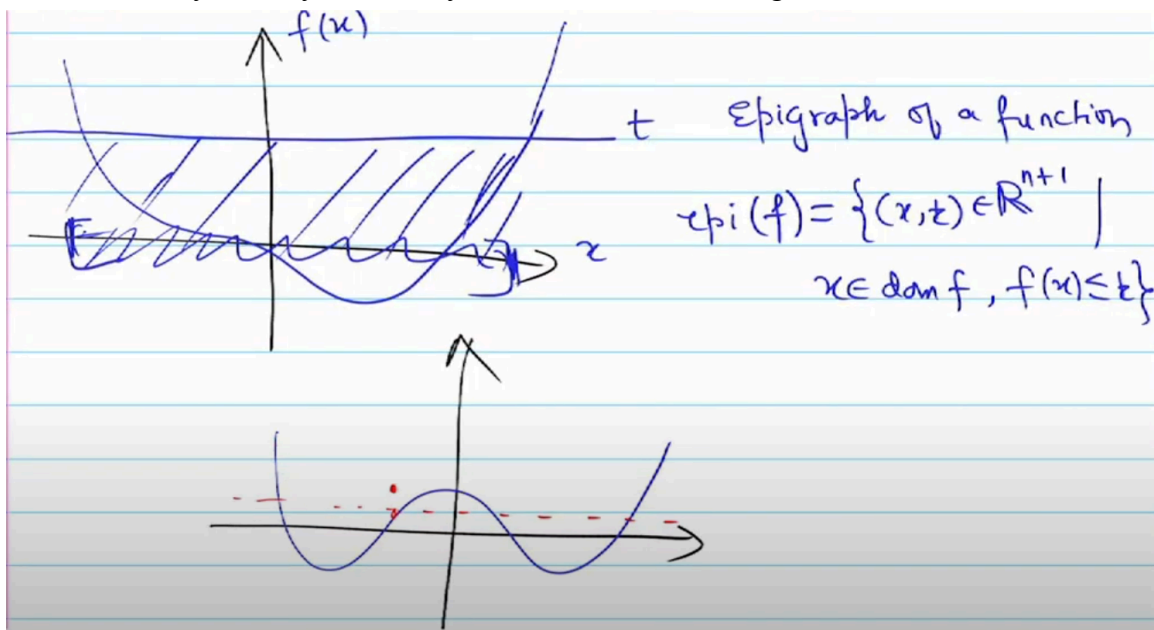 f(x)
t
Epigraph of a function
epi(f) = {(x,t) ∈ ℝ^{n+1} |
x
x ∈ dom f, f(x) ≤ t}